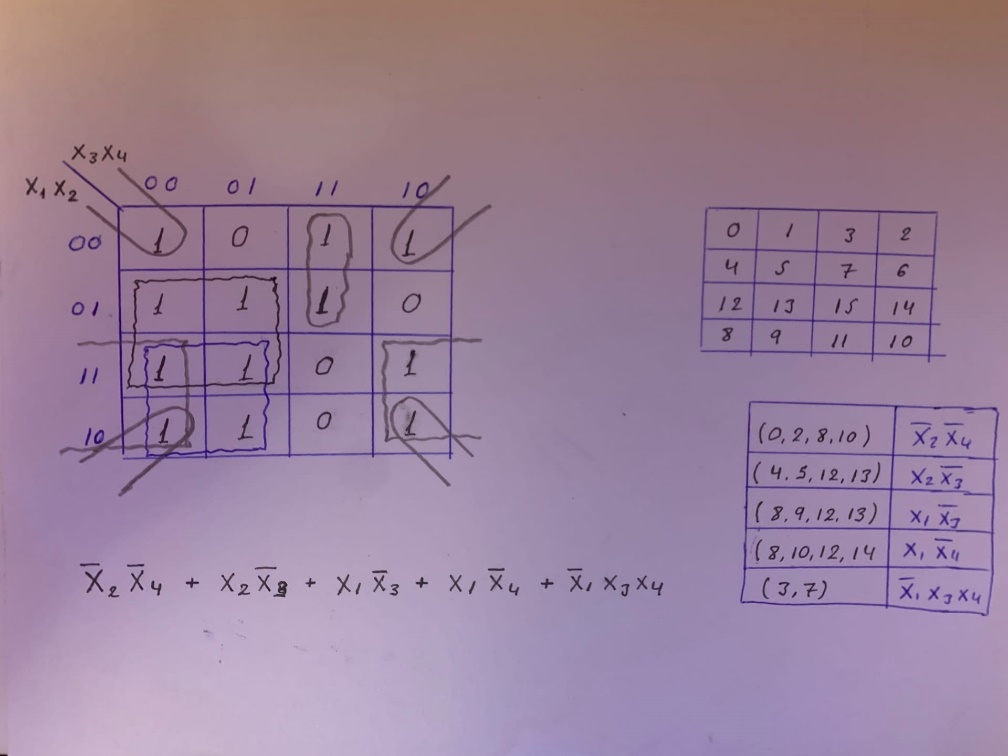 X₃X₄
X₁X₂
00 01 11 10
00 1 0 1 1
01 1 1 1 0
11 1 1 0 1
10 1 1 0 1
0 1 3 2
4 5 7 6
12 13 15 14
8 9 11 10
(0,2,8,10) X̅₂ X̅₄
(4.5,12,13) X₂ X̅₃
(8,9,12,13) X₁ X̅₃
(8,10,12,14 X₁ X̅₄
(3,7) X̅₁ X₃ X₄
X̅₂ X̅₄ + X₂ X̅₃ + X₁ X̅₃ + X₁ X̅₄ + X̅₁ X₃ X₄